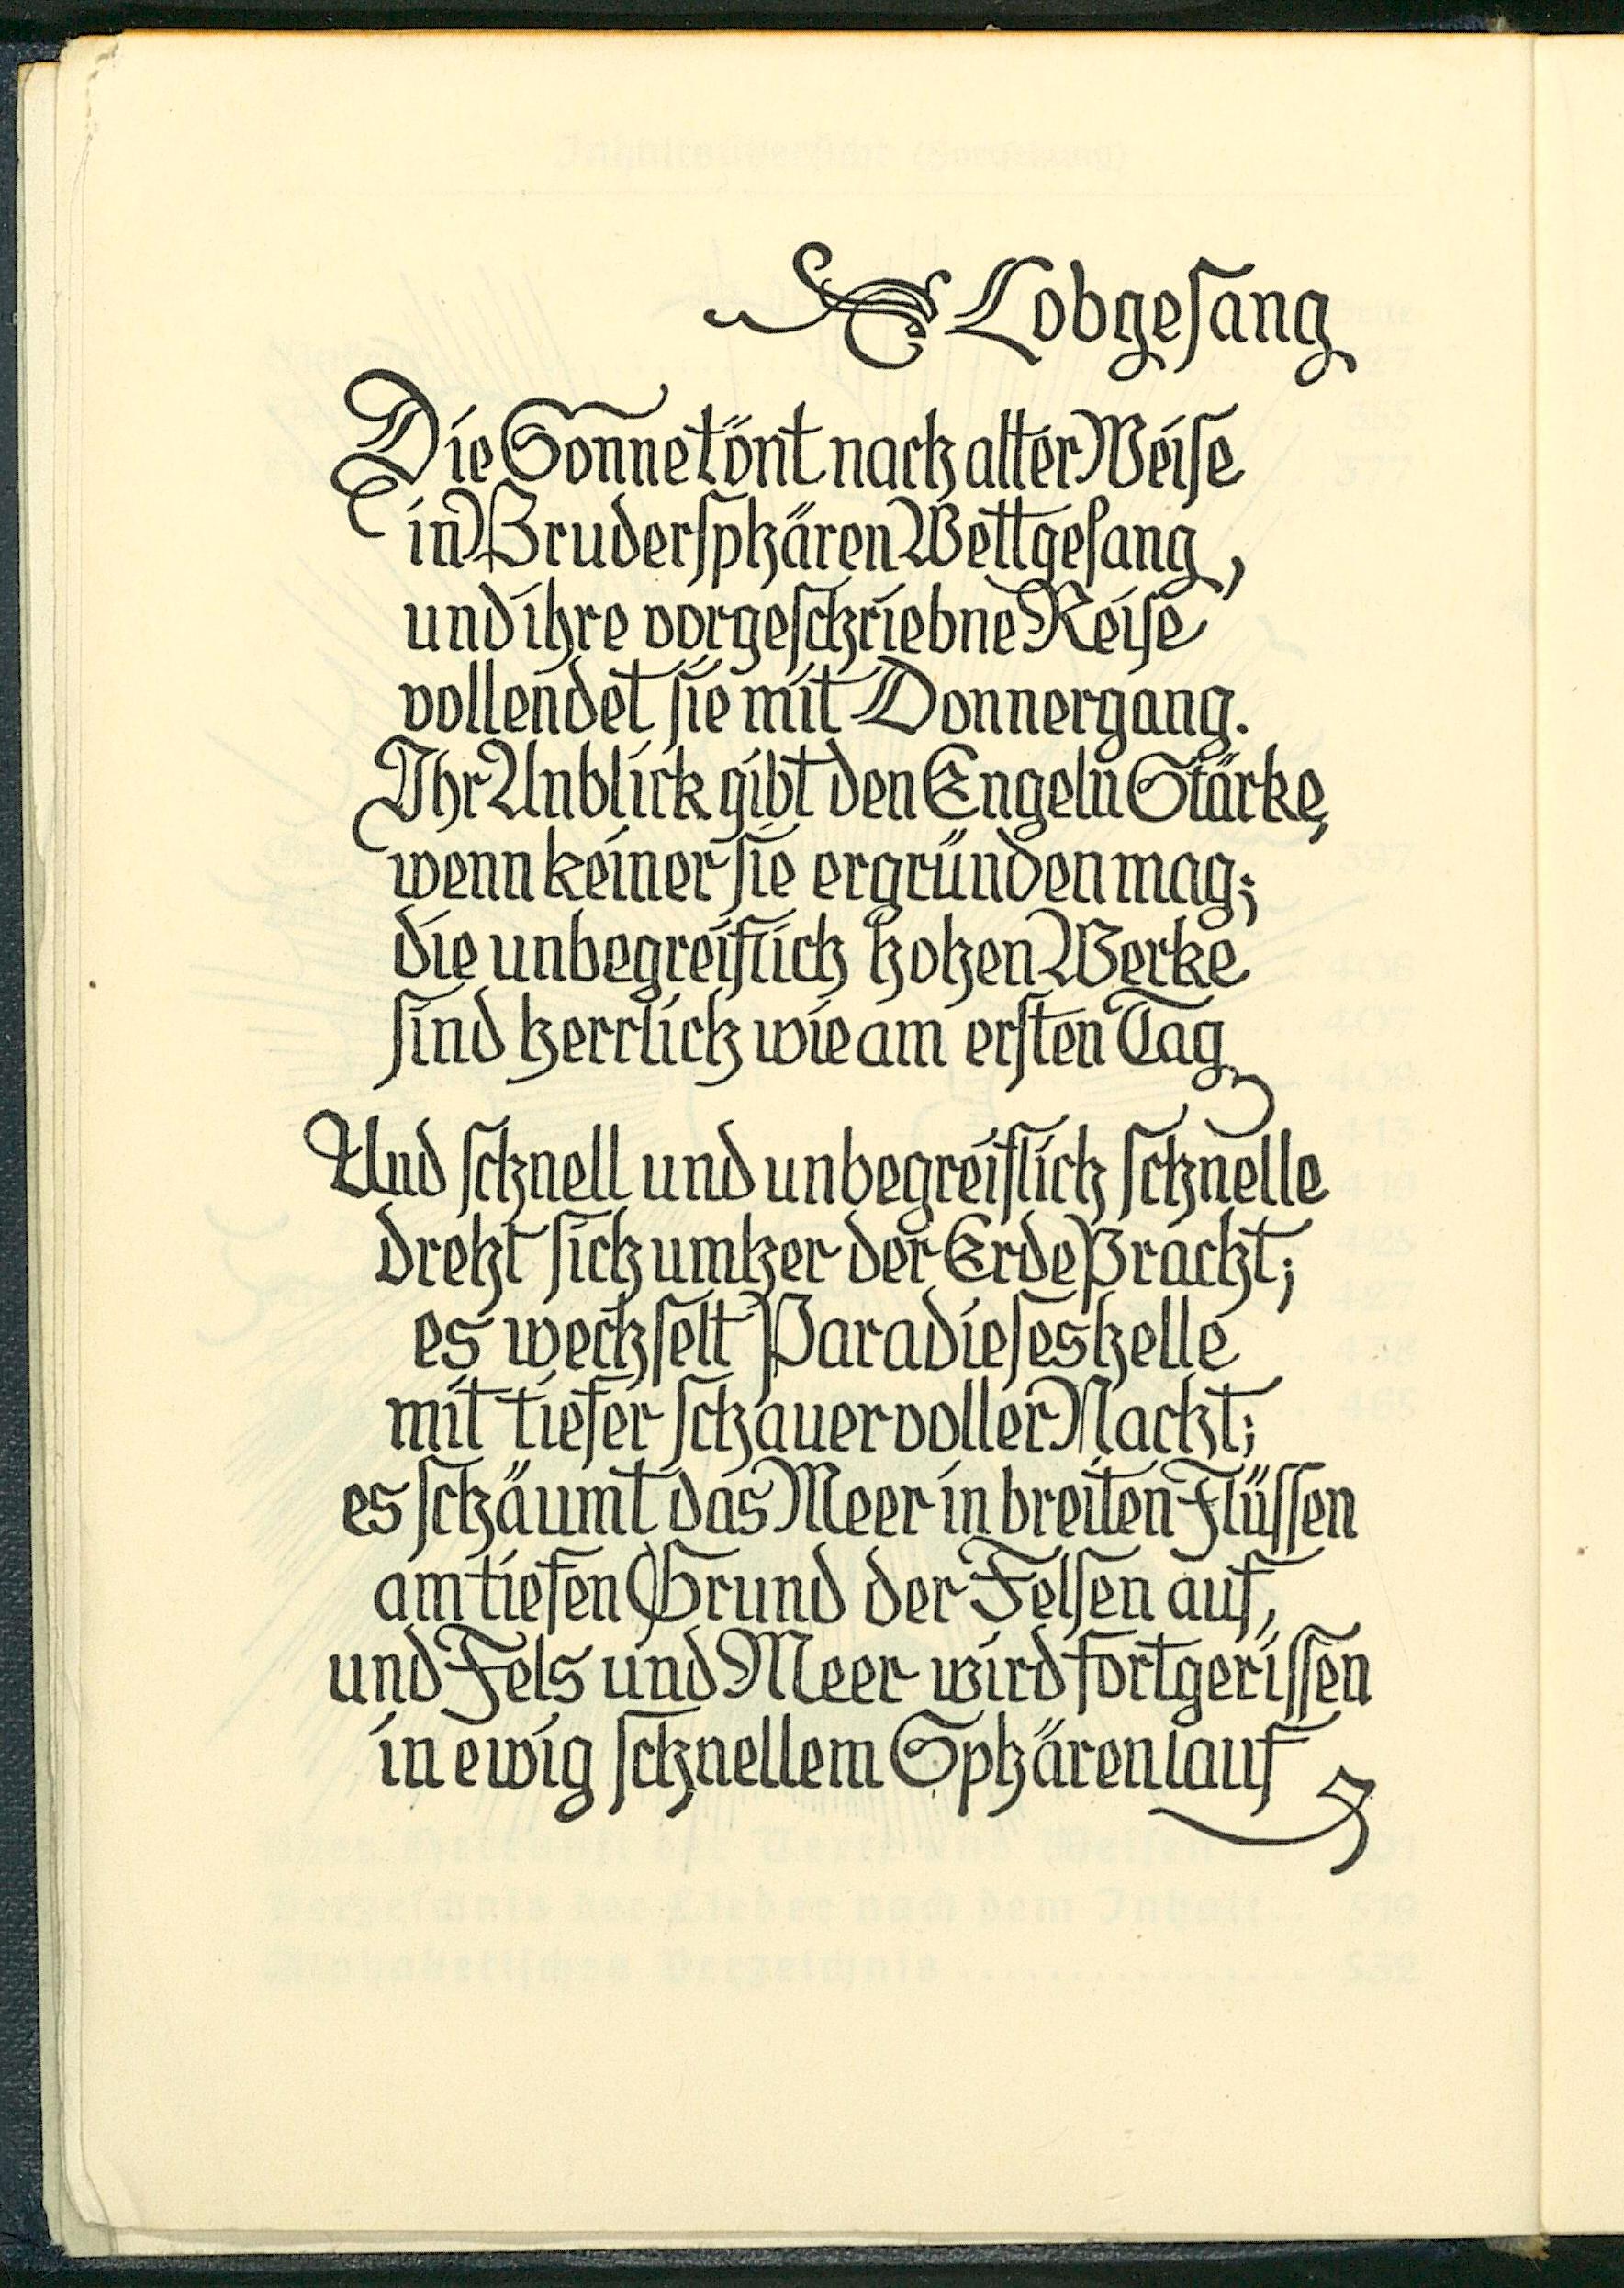 Lobgeſang
Die Sonne tönt nach alter Weiſe
in Bruderſphären Wettgeſang,
und ihre vorgeſchriebne Reiſe
vollendet ſie mit Donnergang.
Ihr Anblick gibt den Engeln Stärke,
wenn keiner ſie ergründen mag;
die unbegreiflich hohen Werke
ſind herrlich wie am erſten Tag
Und ſchnell und unbegreiflich ſchnelle
dreht ſich umher der Erde Pracht;
es wechſelt Paradieſeshelle
mit tiefer ſchauervoller Nacht;
es ſchäumt das Meer in breiten Flüſſen
am tiefen Grund der Felſen auf,
und Fels und Meer wird fortgeriſſen
in ewig ſchnellem Sphärenlauf